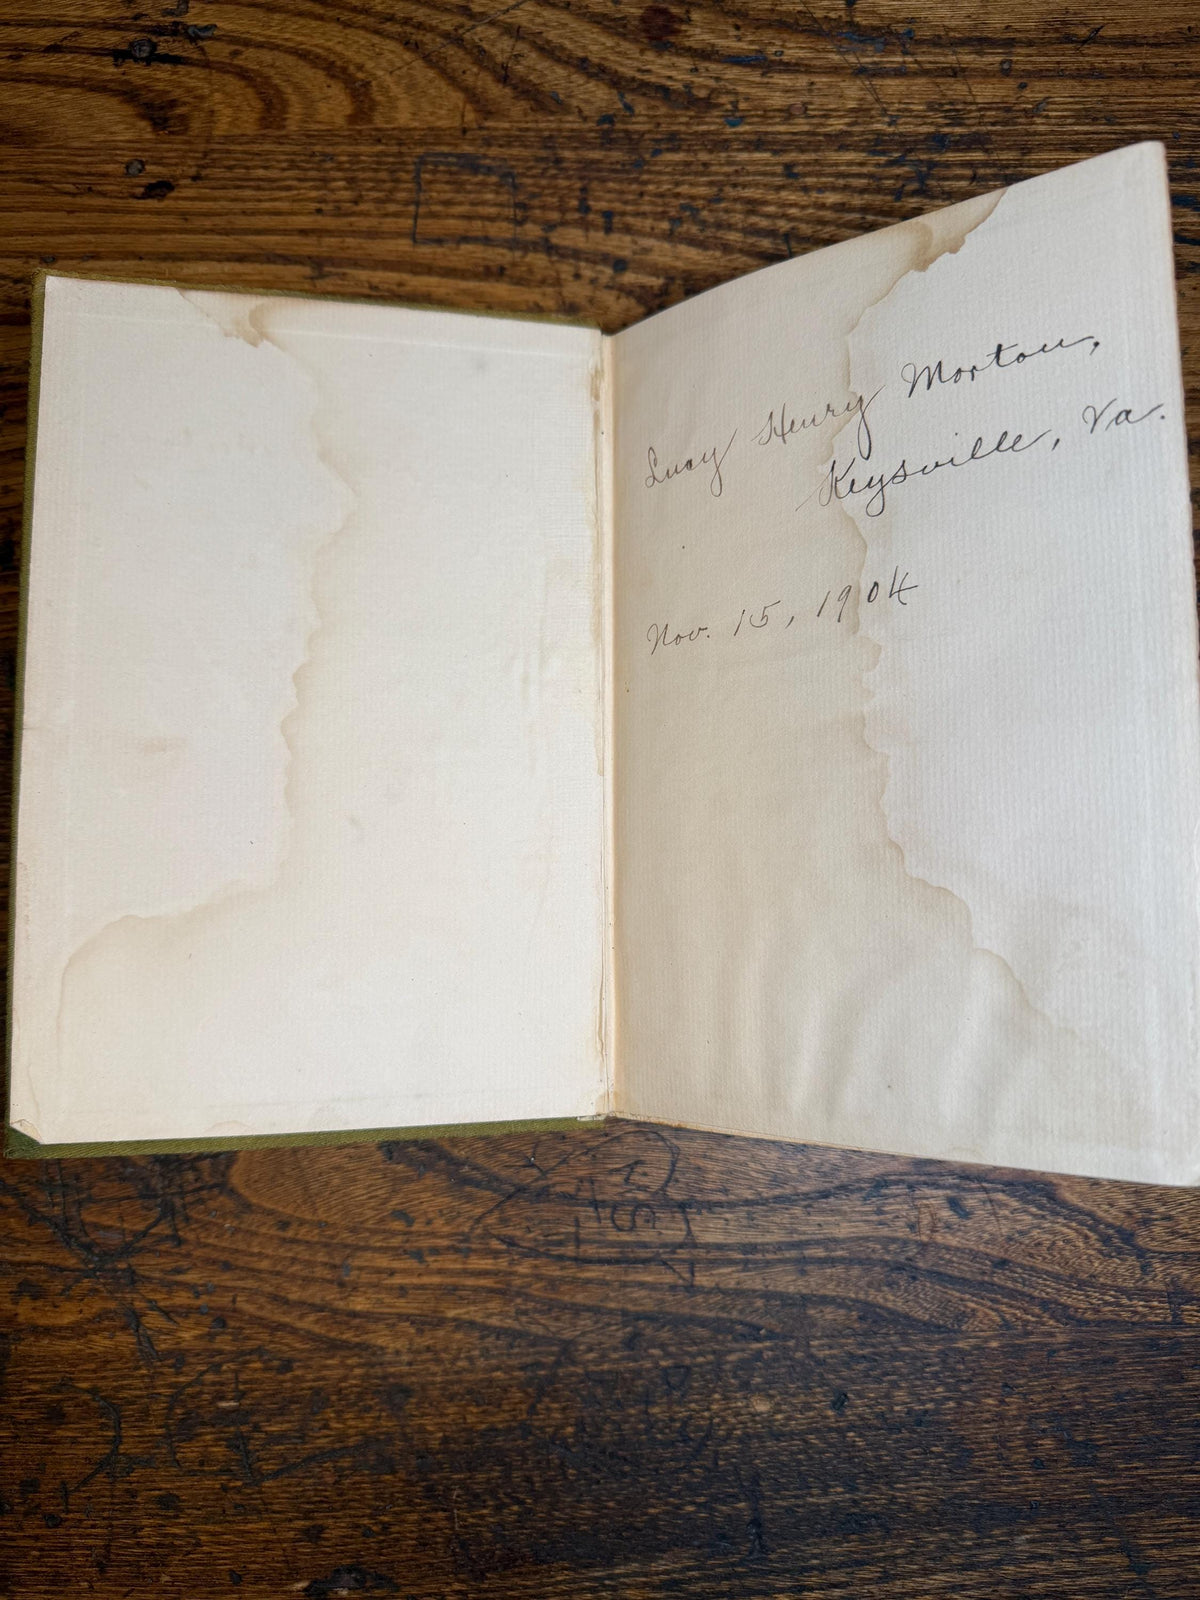 Lucy Henry Morton,
Keysville, Va.
Nov. 15, 1904